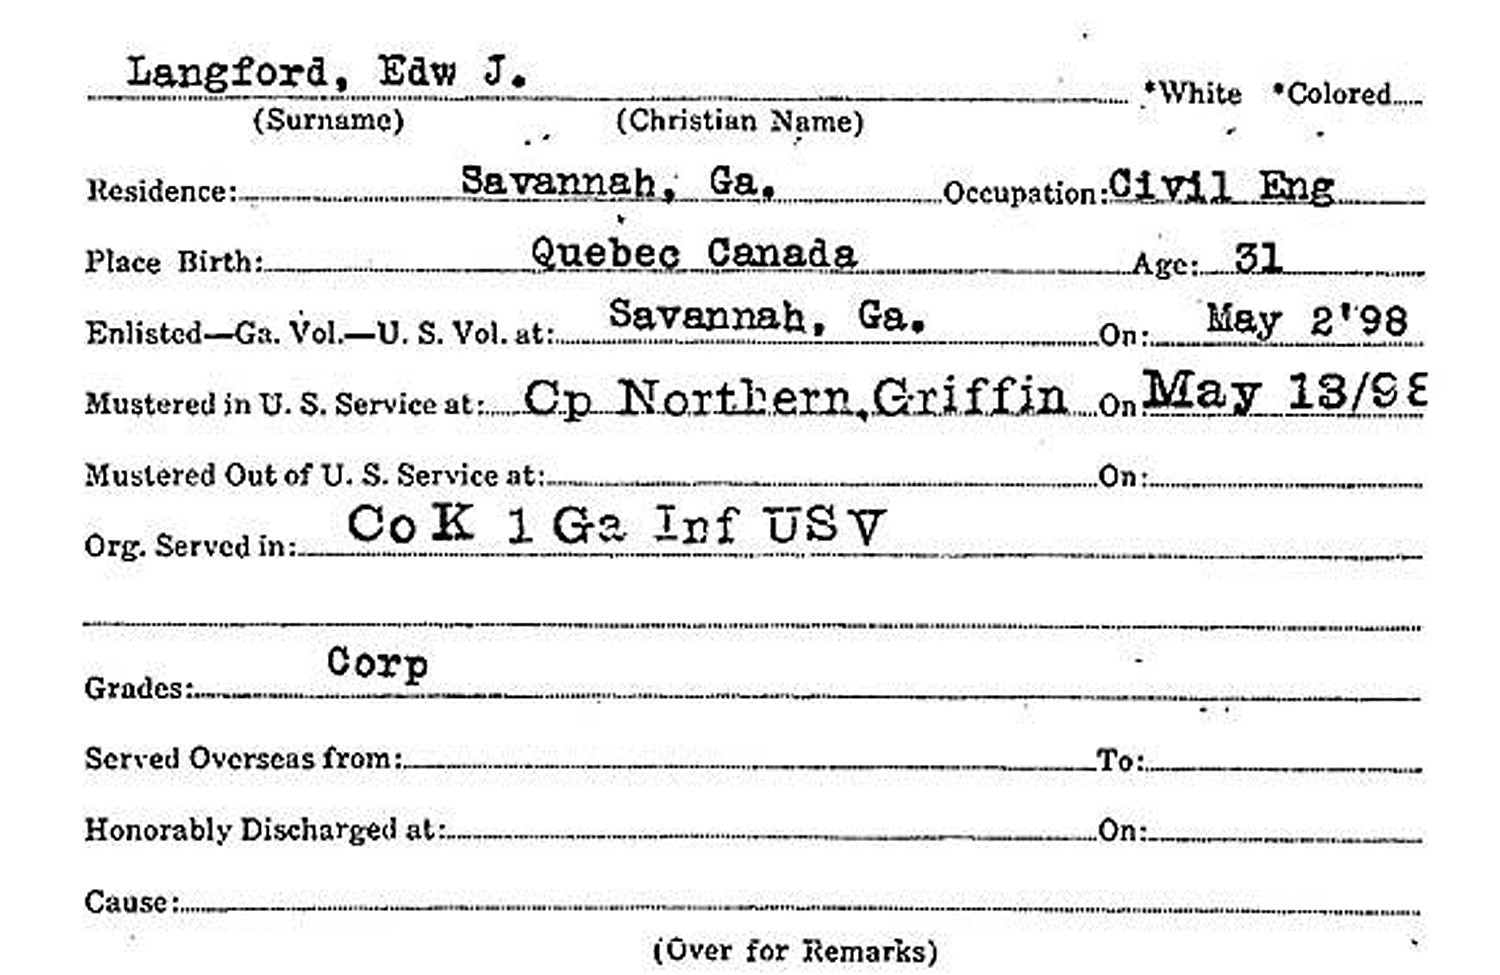 Langford, Edw J. *White *Colored
(Surname) (Christian Name)
Residence: Savannah, Ga. Occupation: Civil Eng
Place Birth: Quebec Canada Age: 31
Enlisted—Ga. Vol.—U. S. Vol. at: Savannah, Ga. On: May 2'98
Mustered in U. S. Service at: Cp Northern, Griffin On: May 13/98
Mustered Out of U. S. Service at: On:
Org. Served in: Co K 1 Ga Inf USV
Grades: Corp
Served Overseas from: To:
Honorably Discharged at: On:
Cause:
(Over for Remarks)